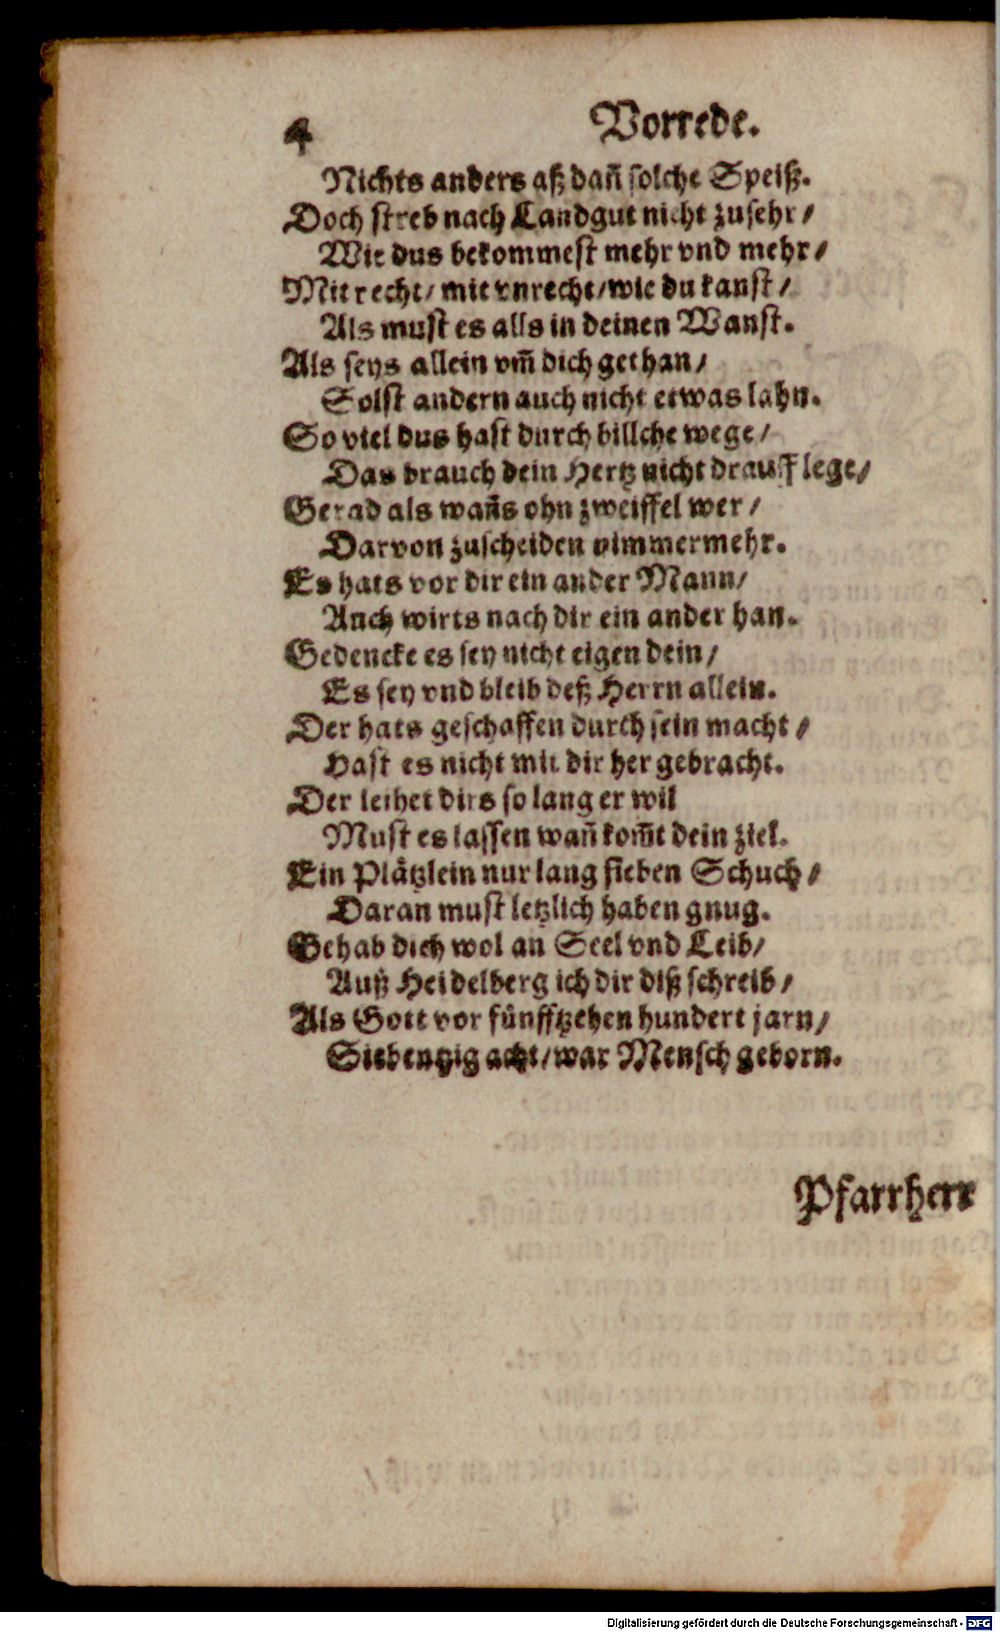 4 Vorrede.
Nichts anders aß dañ solche Speiß.
Doch streb nach Landgut nicht zusehr /
Wie dus bekommest mehr vnd mehr /
Mit recht / mit vnrecht / wie du kanst /
Als must es alls in deinen Wanst.
Als seys allein vm̃ dich gethan /
Solst andern auch nicht etwas lahn.
So viel dus hast durch billche wege /
Das brauch dein Hertz nicht drauff lege /
Gerad als wañs ohn zweiffel wer /
Darvon zuscheiden nimmermehr.
Es hats vor dir ein ander Mann /
Auch wirts nach dir ein ander han.
Gedencke es sey nicht eigen dein /
Es sey vnd bleib deß Herrn allein.
Der hats geschaffen durch sein macht /
Hast es nicht mit dir her gebracht.
Der leihet dirs so lang er wil
Must es lassen wañ kom̃t dein ziel.
Ein Plätzlein nur lang sieben Schuch /
Daran must letzlich haben gnug.
Gehab dich wol an Seel vnd Leib /
Auß Heidelberg ich dir diß schreib /
Als Gott vor fünfftzehen hundert jarn /
Siebentzig acht / war Mensch geborn.
Pfarrherr
Digitalisierung gefördert durch die Deutsche Forschungsgemeinschaft - DFG